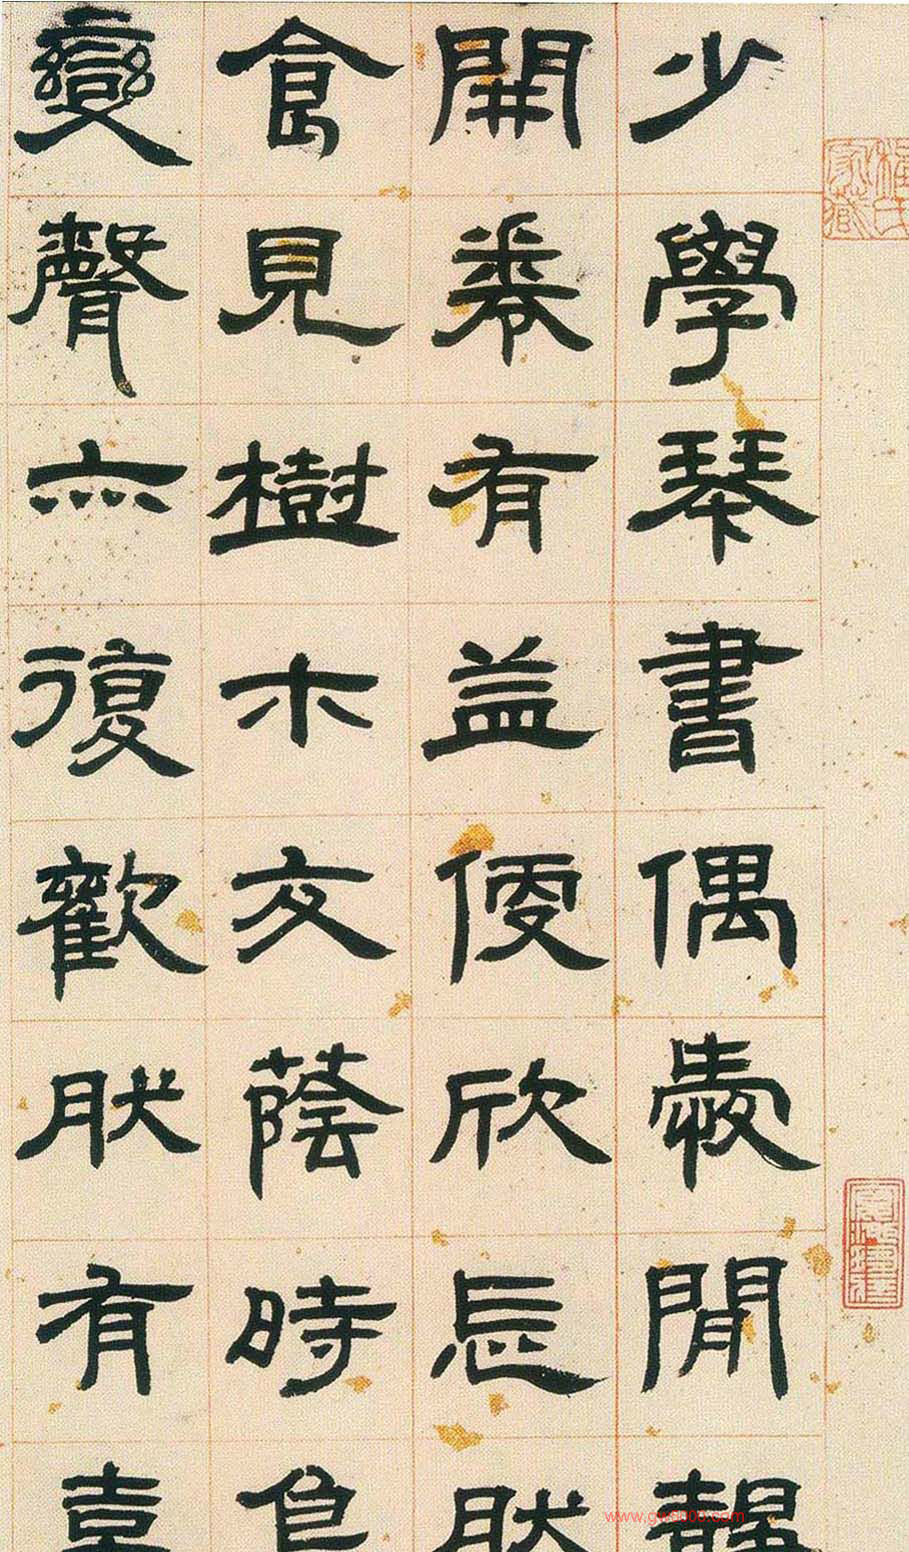 程氏家藏
少學琴書偶愛閒靜
開卷有益便欣忘然
食見樹木交蔭時鳥
變聲亦復歡然有喜